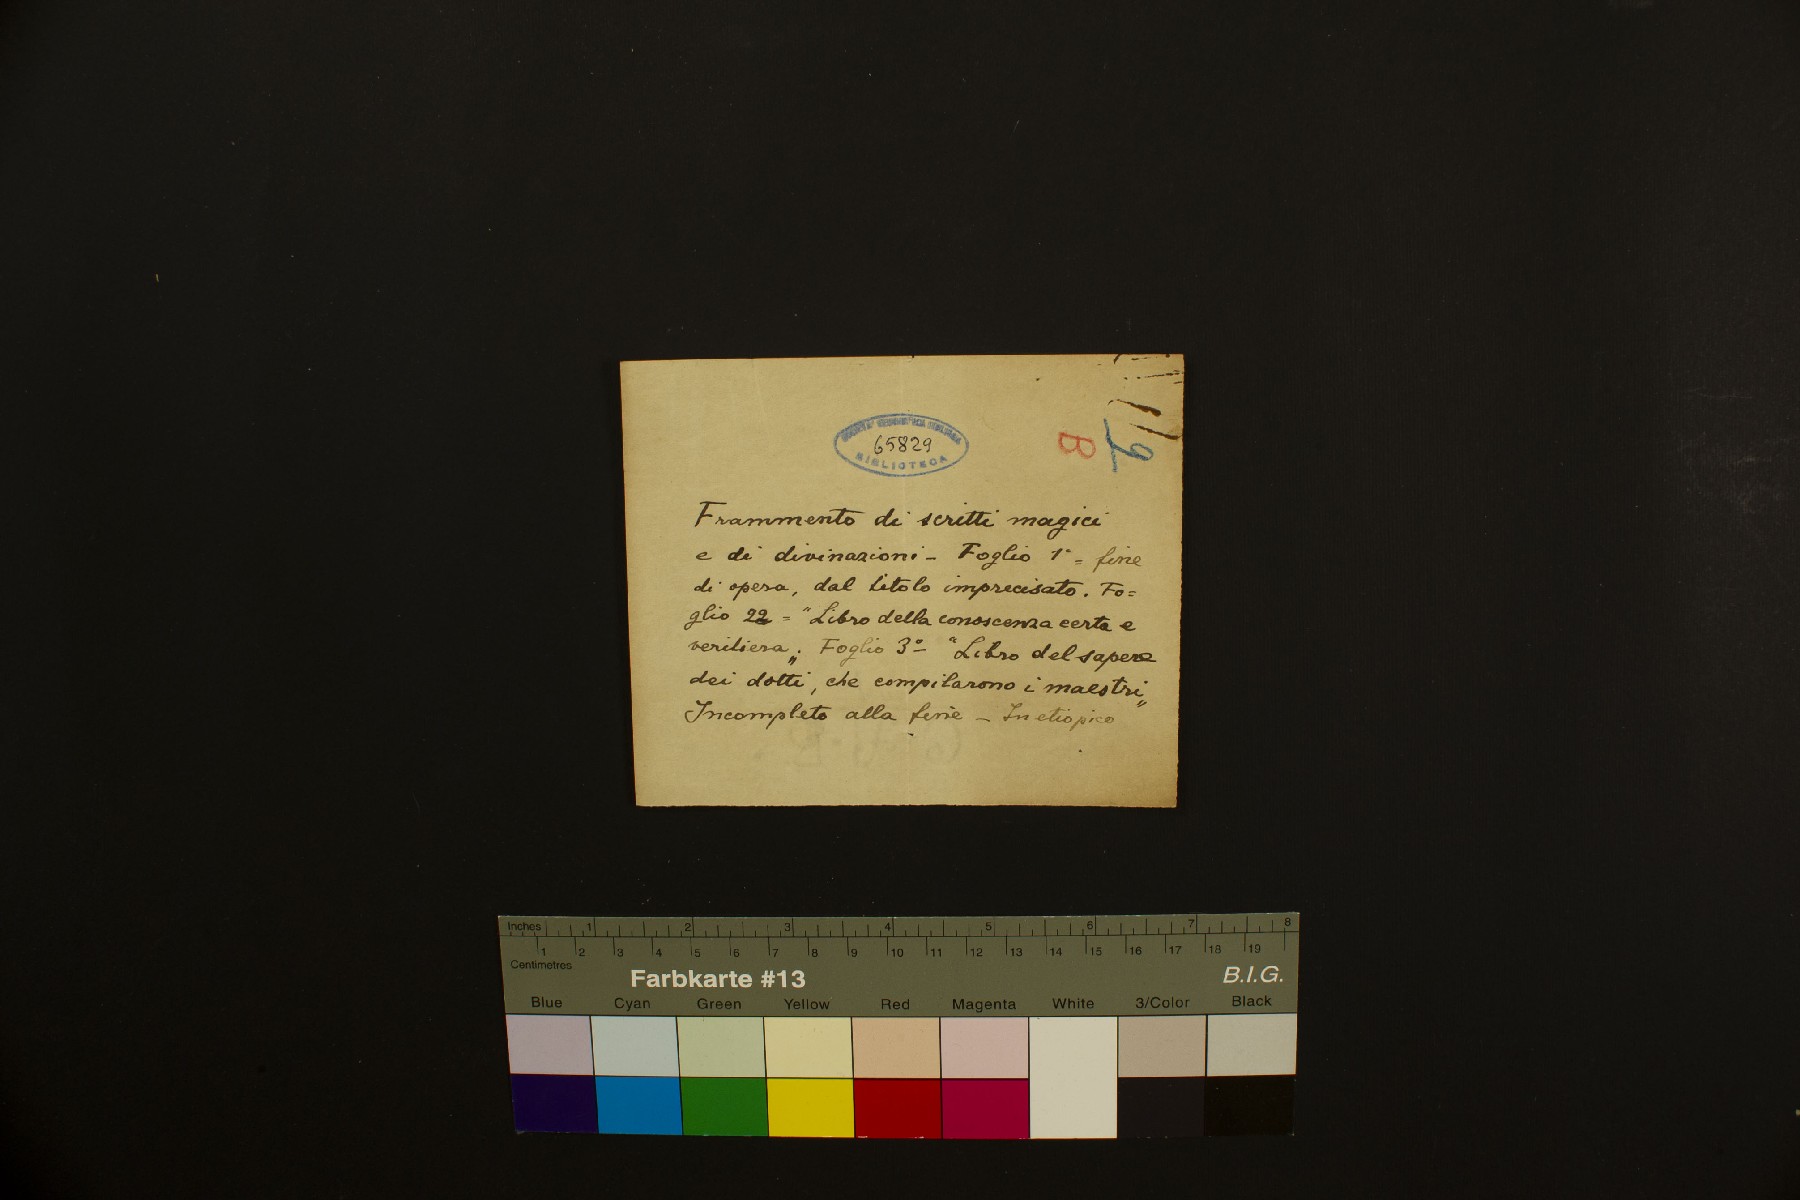 SOCIETA' GEOGRAFICA ITALIANA
65829
BIBLIOTECA
B
Frammento di scritti magici
e di divinazioni - Foglio 1° = fine
di opera, dal titolo imprecisato. Fo=
glio 22 = "Libro della conoscenza certa e
veritiera„. Foglio 3° - "Libro del sapere
dei dotti, che compilarono i maestri„
Incompleto alla fine - In etiopico
Inches 1 2 3 4 5 6 7 8
1 2 3 4 5 6 7 8 9 10 11 12 13 14 15 16 17 18 19
Centimetres
Farbkarte #13 B.I.G.
Blue Cyan Green Yellow Red Magenta White 3/Color Black